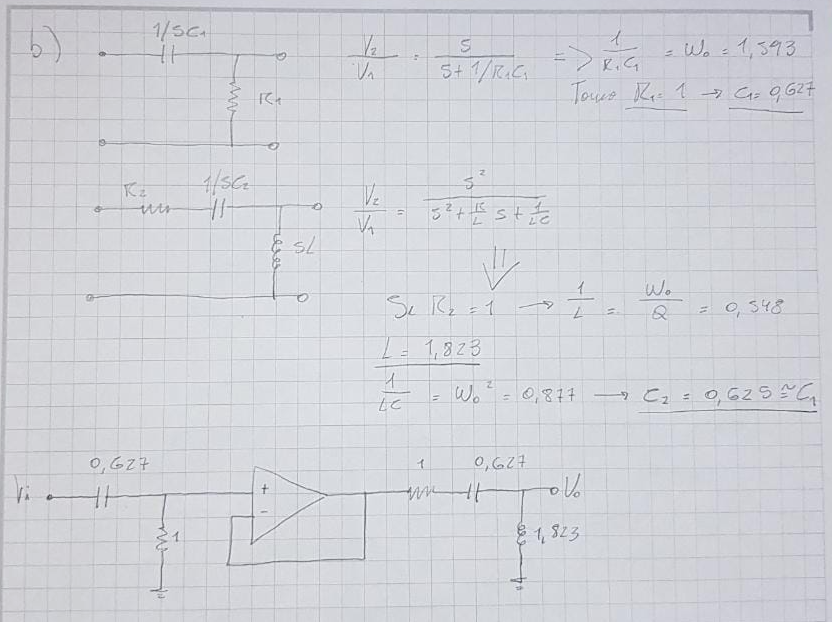 b)
1/SC₁
R₁
V₂/V₁ = S/(S + 1/R₁C₁) => 1/(R₁C₁) = W₀ = 1,593
Tomo R₁ = 1 → C₁ = 0,627
R₂ 1/SC₂
SL
V₂/V₁ = S²/(S² + R/L S + 1/LC)
⇓
Si R₂ = 1 → 1/L = W₀/Q = 0,548
L = 1,823
1/LC = W₀² = 0,877 → C₂ = 0,625 ≅ C₁
Vi 0,627 1 0,627 V₀
+
-
1 1,823